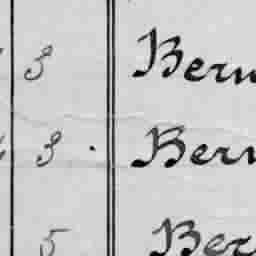 3 Bern
3 . Bern
5 Ber